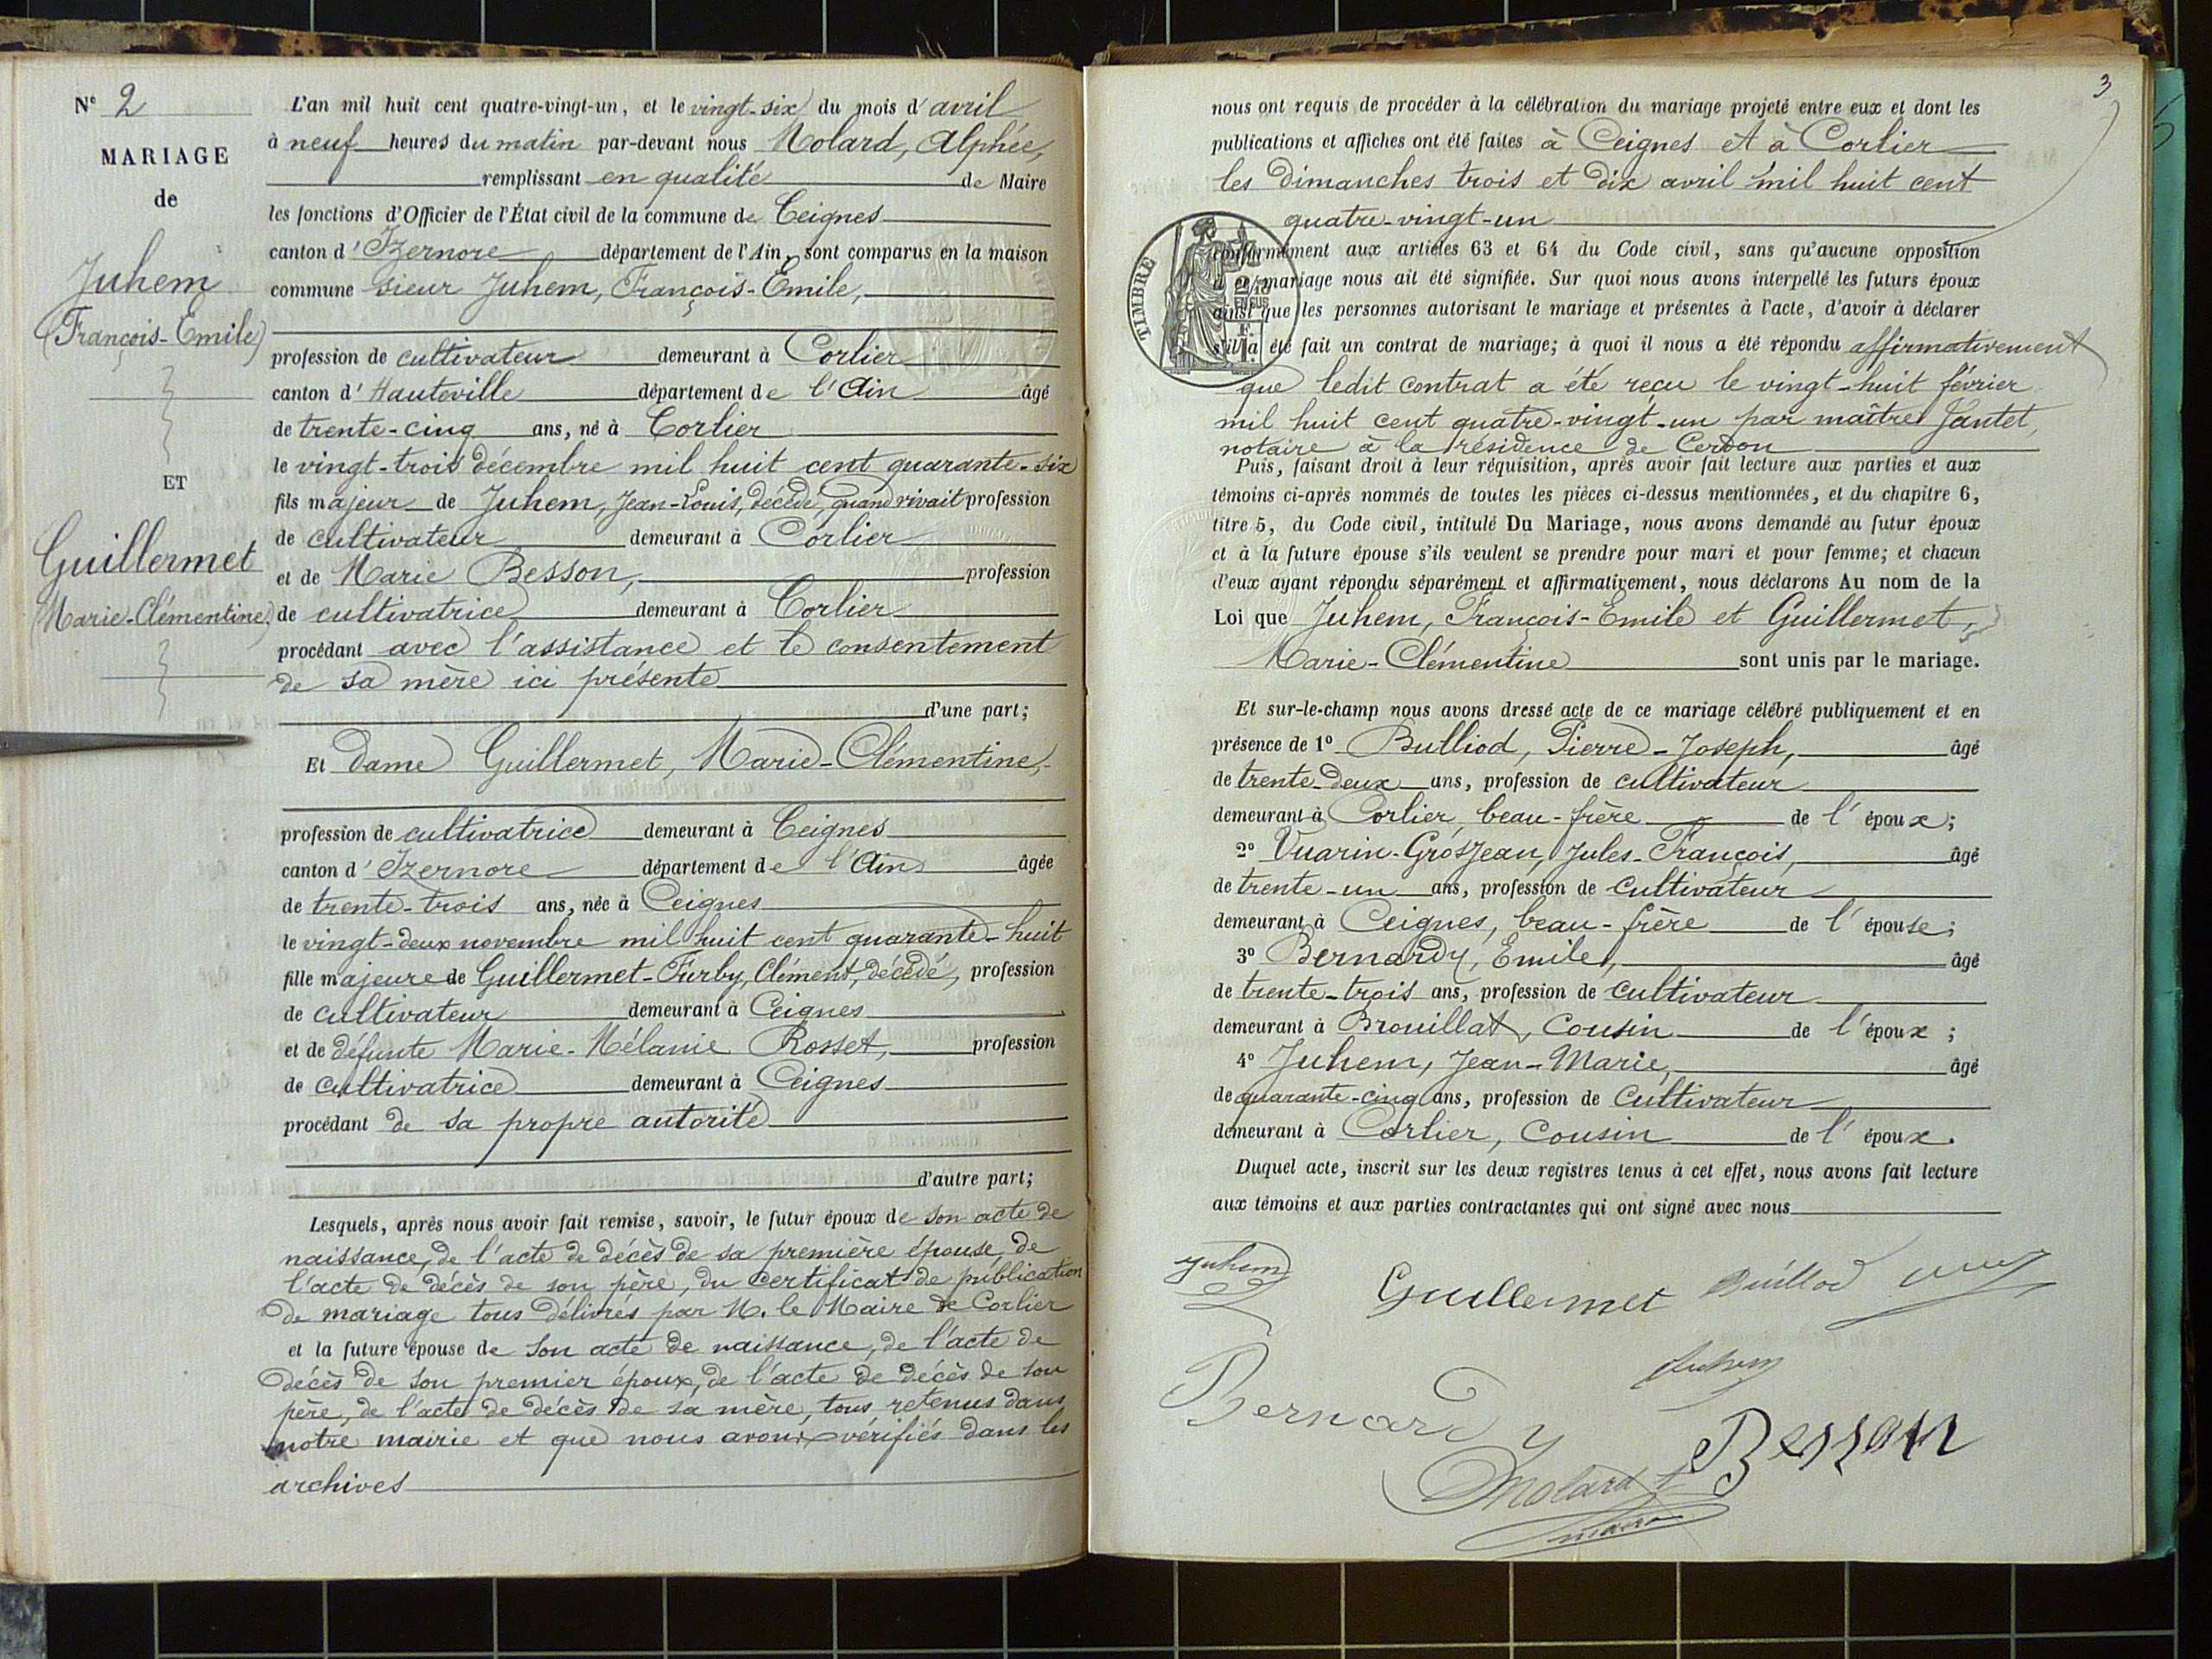 Nº 2
MARIAGE
de
Juhem
(François-Emile)
ET
Guillermet
(Marie-Clémentine)
L'an mil huit cent quatre-vingt-un, et le vingt-six du mois d'avril
à neuf heures du matin par-devant nous Molard, Alphée,
remplissant en qualité de Maire
les fonctions d'Officier de l'État civil de la commune de Ceignes
canton d'Izernore département de l'Ain, sont comparus en la maison
commune sieur Juhem, François-Emile,
profession de cultivateur demeurant à Corlier
canton d'Hauteville département de l'Ain âgé
de trente-cinq ans, né à Corlier
le vingt-trois décembre mil huit cent quarante-six
fils majeur de Juhem, Jean-Louis, décédé, quand vivait profession
de cultivateur demeurant à Corlier
et de Marie Besson, profession
de cultivatrice demeurant à Corlier
procédant avec l'assistance et le consentement
de sa mère ici présente
d'une part;
Et Dame Guillermet, Marie-Clémentine,
profession de cultivatrice demeurant à Ceignes
canton d'Izernore département de l'Ain âgée
de trente-trois ans, née à Ceignes
le vingt-deux novembre mil huit cent quarante-huit
fille majeure de Guillermet-Furby, Clément, décédé, profession
de cultivateur demeurant à Ceignes
et de défunte Marie-Mélanie Rosset, profession
de cultivatrice demeurant à Ceignes
procédant de sa propre autorité
d'autre part;
Lesquels, après nous avoir fait remise, savoir, le futur époux de son acte de
naissance, de l'acte de décès de sa première épouse, de
l'acte de décès de son père, du certificat de publication
de mariage tous délivrés par M. le Maire de Corlier
et la future épouse de son acte de naissance, de l'acte de
décès de son premier époux, de l'acte de décès de son
père, de l'acte de décès de sa mère, tous retenus dans
notre mairie et que nous avons vérifiés dans les
archives
3
nous ont requis de procéder à la célébration du mariage projeté entre eux et dont les
publications et affiches ont été faites à Ceignes et à Corlier
les dimanches trois et dix avril mil huit cent
quatre-vingt-un
TIMBRE
conformément aux articles 63 et 64 du Code civil, sans qu'aucune opposition
à ce mariage nous ait été signifiée. Sur quoi nous avons interpellé les futurs époux
ainsi que les personnes autorisant le mariage et présentes à l'acte, d'avoir à déclarer
s'il a été fait un contrat de mariage; à quoi il nous a été répondu affirmativement
que ledit contrat a été reçu le vingt-huit février
mil huit cent quatre-vingt-un par maître Jantet,
notaire à la résidence de Cerdon
Puis, faisant droit à leur réquisition, après avoir fait lecture aux parties et aux
témoins ci-après nommés de toutes les pièces ci-dessus mentionnées, et du chapitre 6,
titre 5, du Code civil, intitulé Du Mariage, nous avons demandé au futur époux
et à la future épouse s'ils veulent se prendre pour mari et pour femme; et chacun
d'eux ayant répondu séparément et affirmativement, nous déclarons Au nom de la
Loi que Juhem, François-Emile et Guillermet,
Marie-Clémentine sont unis par le mariage.
Et sur-le-champ nous avons dressé acte de ce mariage célébré publiquement et en
présence de 1º Bulliod, Pierre-Joseph, âgé
de trente-deux ans, profession de cultivateur
demeurant à Corlier, beau-frère de l'époux;
2º Vuarin-Grosjean, Jules-François, âgé
de trente-un ans, profession de cultivateur
demeurant à Ceignes, beau-frère de l'épouse;
3º Bernardy, Emile, âgé
de trente-trois ans, profession de cultivateur
demeurant à Brouillat, cousin de l'époux;
4º Juhem, Jean-Marie, âgé
de quarante-cinq ans, profession de cultivateur
demeurant à Corlier, cousin de l'époux.
Duquel acte, inscrit sur les deux registres tenus à cet effet, nous avons fait lecture
aux témoins et aux parties contractantes qui ont signé avec nous
Juhem
Guillermet Bulliod
Juhem
Bernardy
Besson
Molard
maire